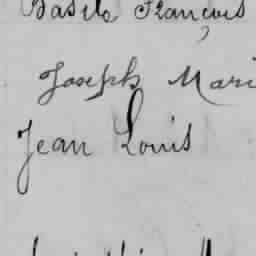 Basile François
Joseph Mari
Jean Louis